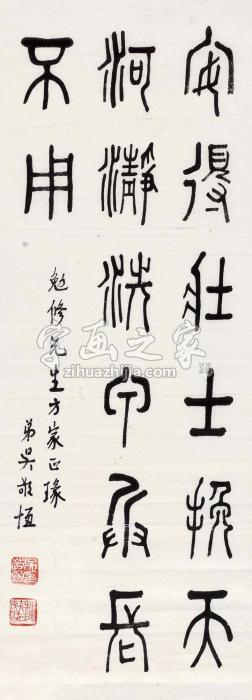 安得壯士挽天
河瀞洗甲兵長
不用
勉修先生方家正
弟吳敬恆
字画之家
www.zihuazhijia.com